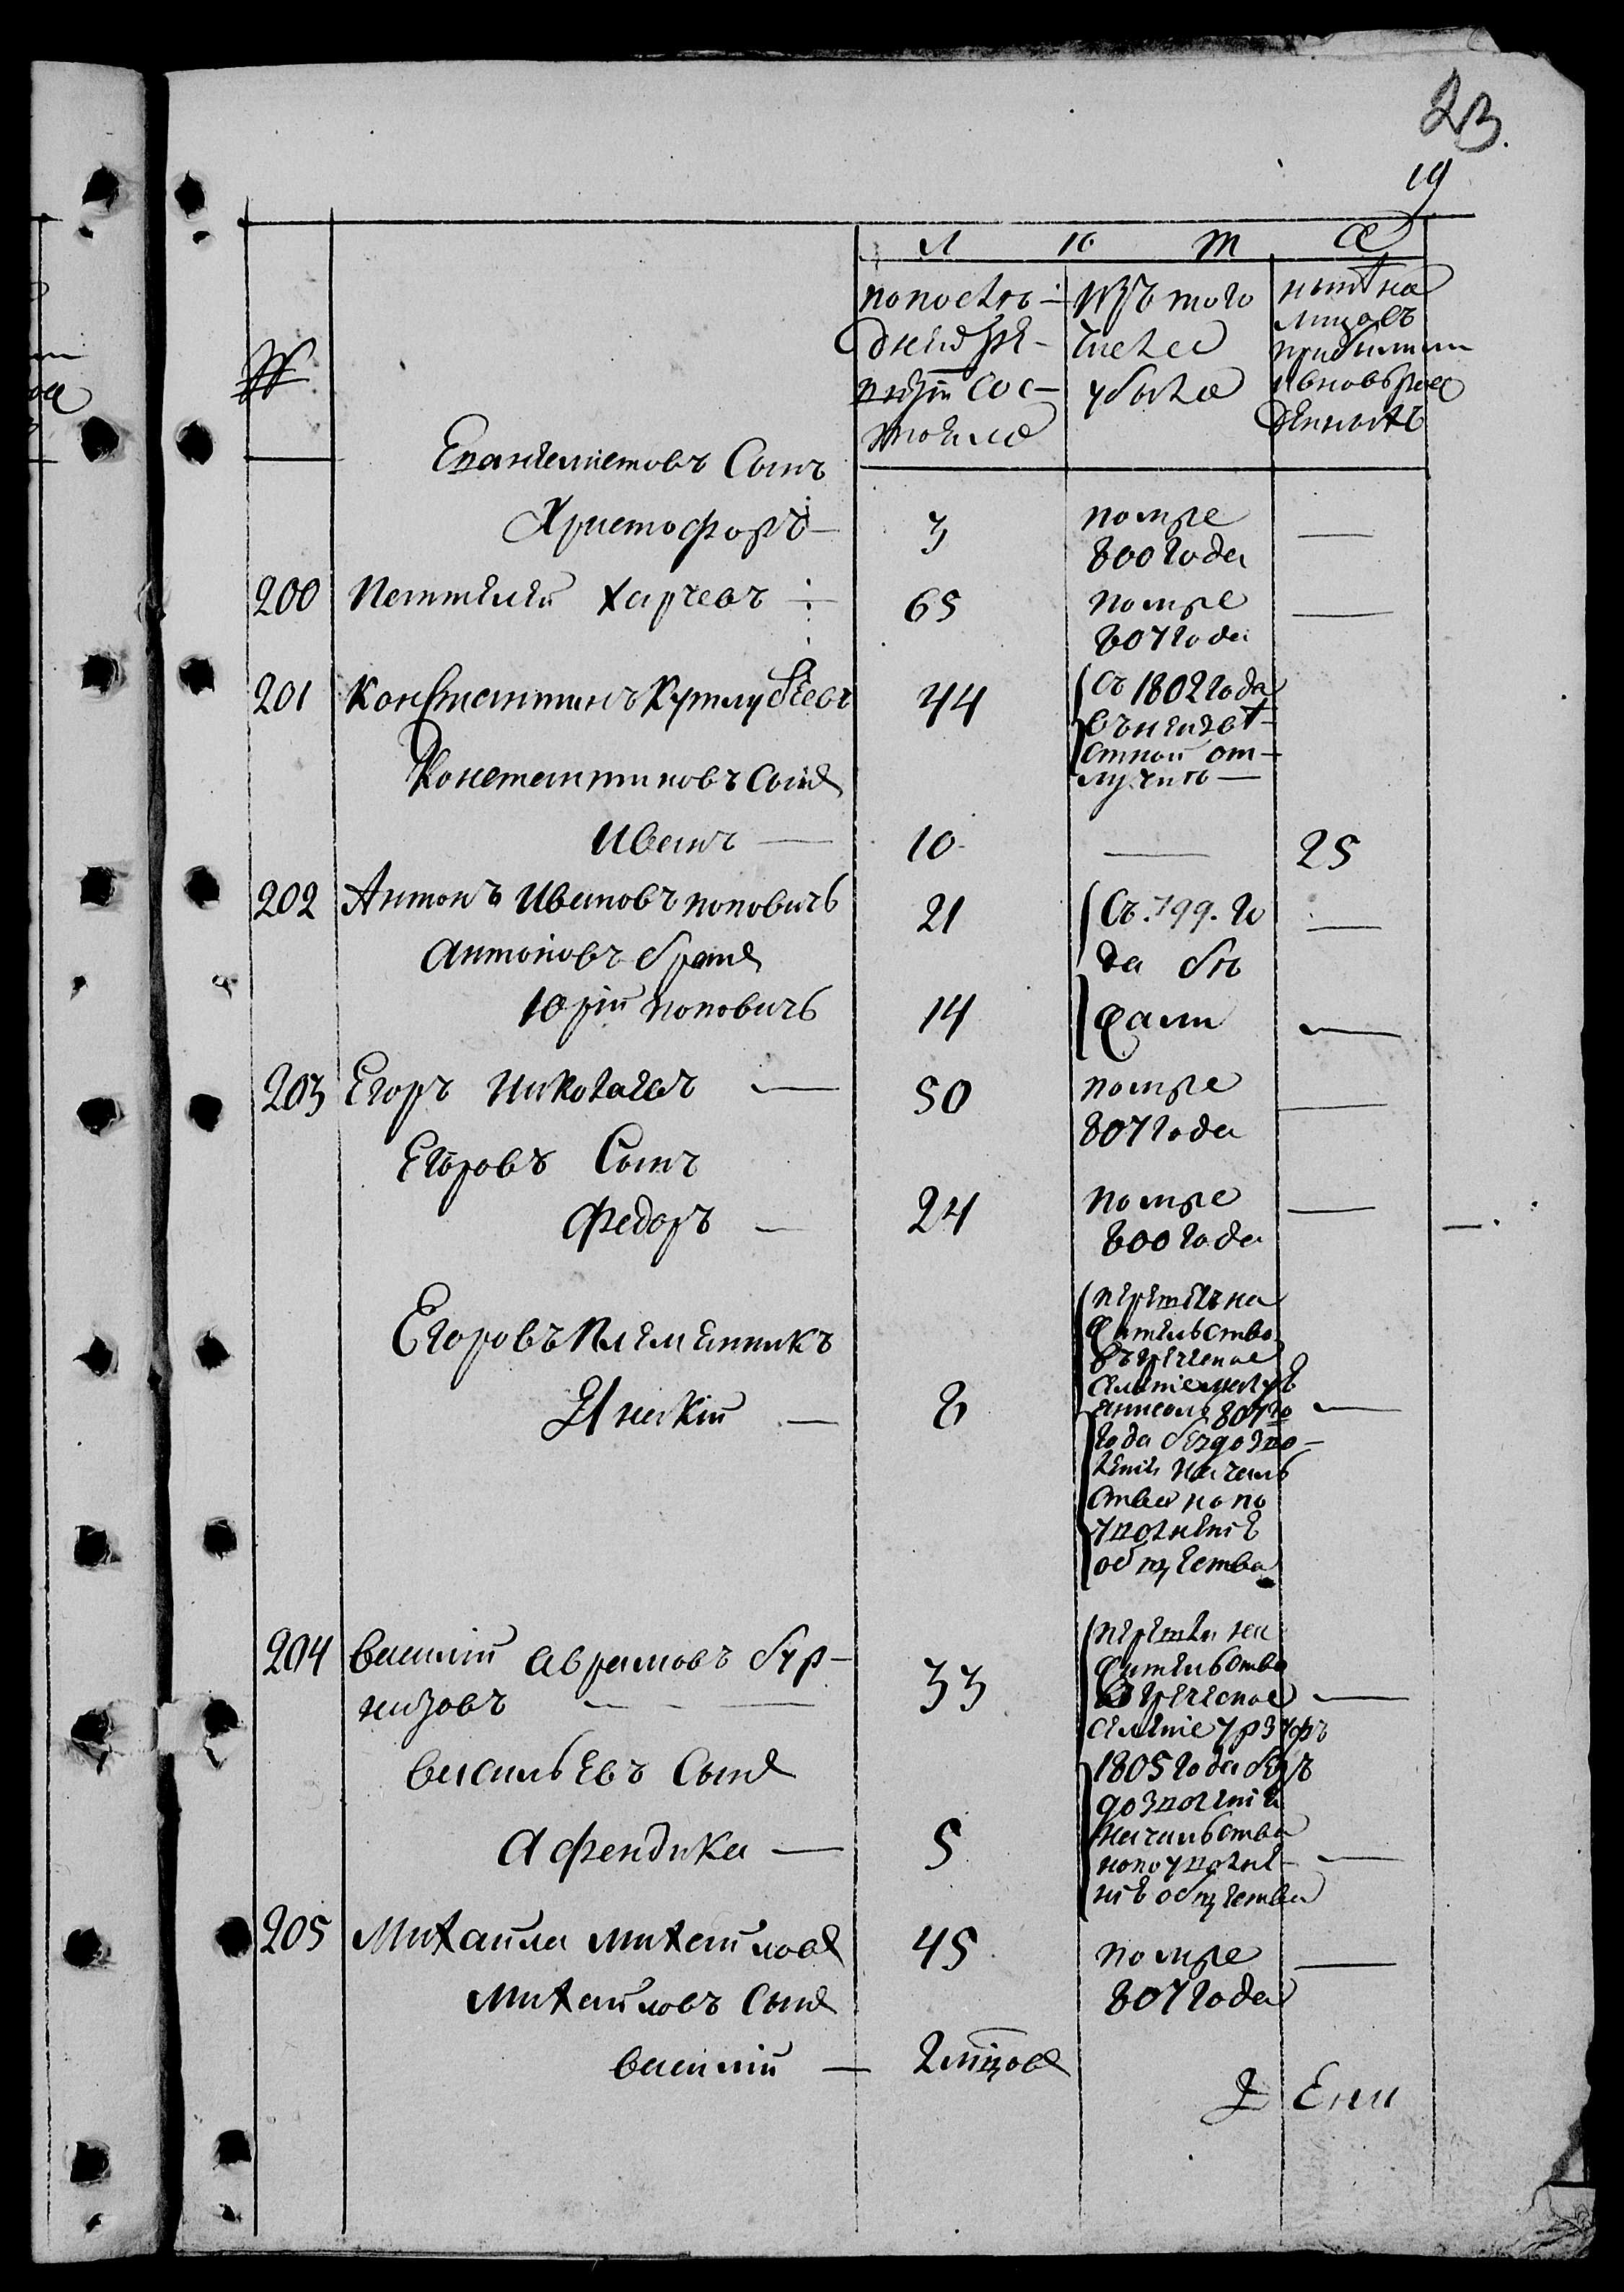 23.
19
Л ю т а
№№
попослѣ-
дней ре-
визіи сос-
тояло
Изъ того
числа
убыло
ныне на
лицо съ
прибылыми
и вновь рож
денными
Евангелистовъ Сынъ
Христофоръ — 3 помре —
800 года
200 Пантелей Харчевъ 65 помре —
807 года
201 Константинъ Кутлубеевъ 44 съ 1802 года
въ неизвѣ-
стной от-
лучкѣ —
Константиновъ Сынъ
Иванъ — 10 — 25
202 Антонъ Ивановъ поповичь 21 Съ 799. го —
да бѣ
Антоновъ братъ
Юрій поповичь 14 жали —
203 Егоръ Николаевъ — 50 помре —
807 года
Егоровъ Сынъ
Федоръ — 24 помре —
800 года
Егоровъ Племянникъ
Янакій — 8 —
перешелъ на
жительство
въ греческое
селеніе
807 го
года без дозво-
ленія началь
ства но по
уволненіе
общества
204 Василій Аврамовъ Бур-
назовъ — — 33 —
Васильевъ Сынъ
Афендика — 5 —
перешли на
жительство
въ греческое
селеніе Урзуфъ
1805 года безъ
дозволенія
начальства
но по уволне-
ніе общества
205 Михайла Михайловъ 45 помре —
807 года
Михайловъ Сынъ
Василій — 2 мѣсяцовъ
Ени